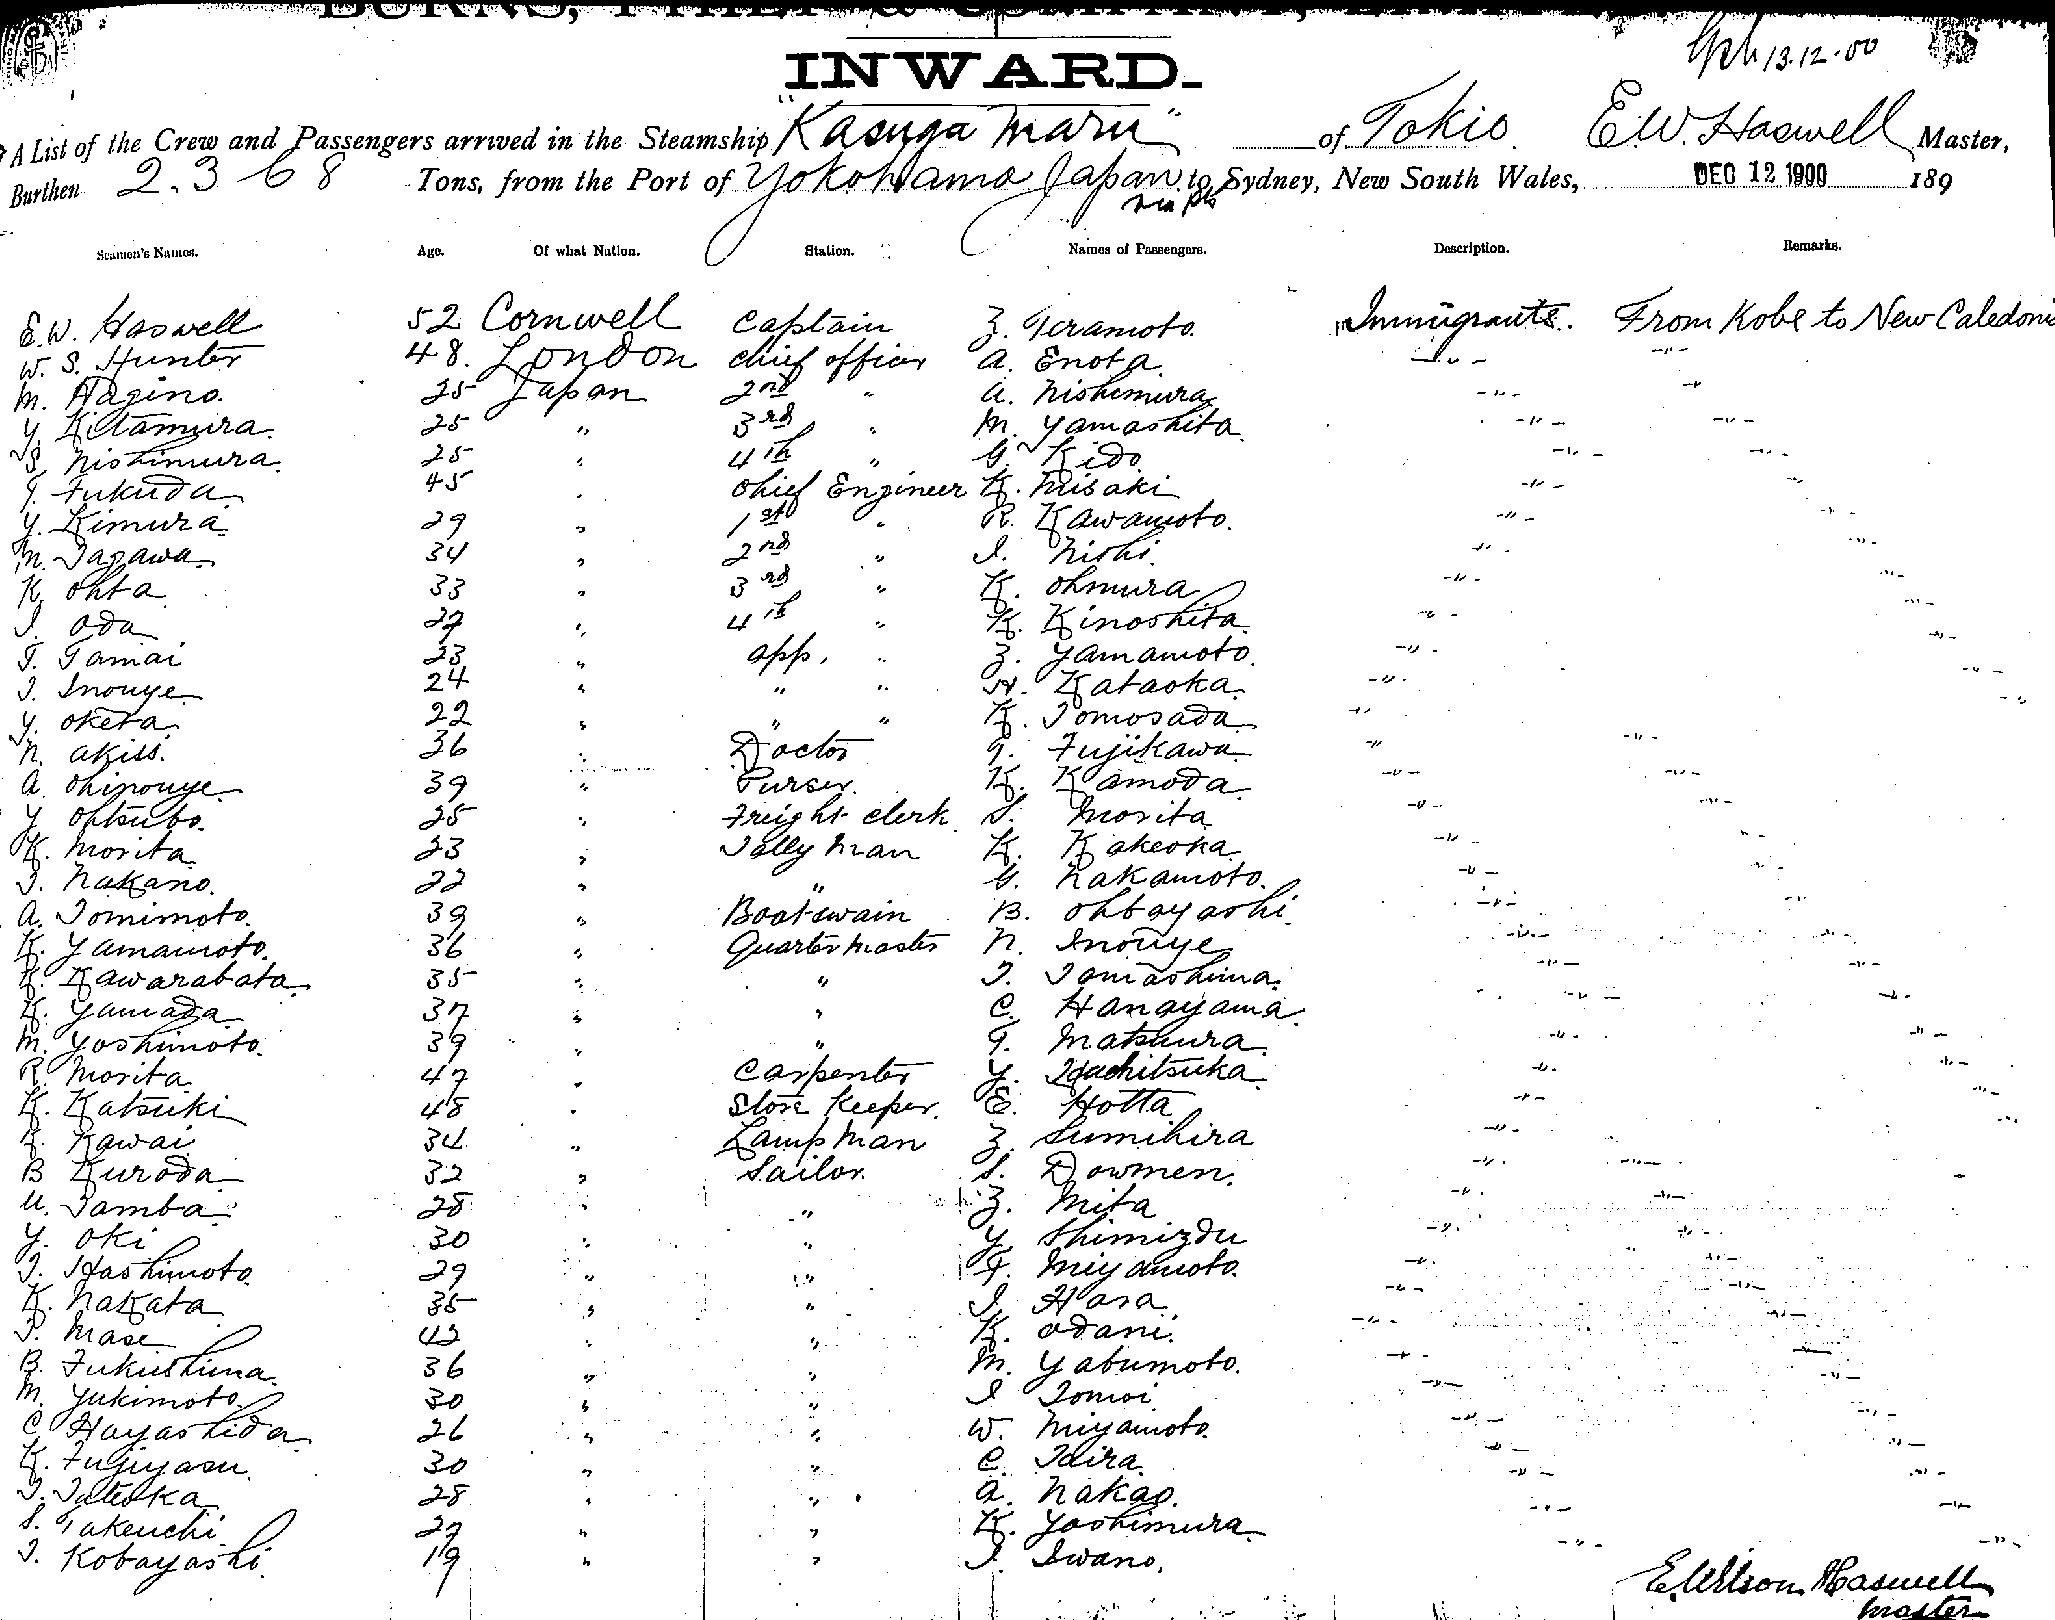 BURNS, PHILP & COMPANY,
INWARD.
13.12.00
A List of the Crew and Passengers arrived in the Steamship "Kasuga Maru" of Tokio E.W. Haswell Master,
Burthen 2.368 Tons, from the Port of Yokohama Japan to Sydney, New South Wales, DEC 12 1900 189
via
Seamen's Names. Age. Of what Nation. Station. Names of Passengers. Description. Remarks.
E.W. Haswell 52 Cornwell Captain Z. Teramoto. Immigrants. From Kobe to New Caledonia
W. S. Hunter 48. London chief officer A. Enota. -"- -"-
M. Hagino. 25 Japan 2nd " A. Nishimura -"- -"-
Y. Kitamura. 25 " 3rd " M. Yamashita. -"- -"-
S. Nishimura. 25 " 4th " G. Kido -"- -"-
T. Fukuda 45 " chief Engineer K. Misaki -"- -"-
Y. Kimura 29 " 1st " R. Kawamoto. -"- -"-
M. Tagawa 34 " 2nd " I. Nishi. -"- -"-
K. Ohta 33 " 3rd " K. Ohmura -"- -"-
I. Oda 29 " 4th " K. Kinoshita. -"- -"-
T. Tamai 23 " app. " Z. Yamamoto. -"- -"-
I. Inouye 24 " " " N. Kataoka. -"- -"-
Y. Oketa 22 " " " K. Tomosada -"- -"-
N. Akiss. 36 " Doctor T. Fujikawa -"- -"-
A. Ohinouye 39 " Purser. K. Kamoda. -"- -"-
Y. Ohtsubo. 25 " Freight clerk S. Morita -"- -"-
K. Morita 23 " Tally Man K. Kakeoka -"- -"-
I. Nakano. 22 " " G. Nakamoto. -"- -"-
A. Tomimoto. 39 " Boatswain B. Ohbayashi. -"- -"-
K. Yamamoto. 36 " Quarter Master N. Inouye -"- -"-
K. Kawarabata. 35 " " T. Tamashima. -"- -"-
K. Yamada 37 " " C. Hanayama. -"- -"-
M. Yoshimoto. 39 " " T. Matsuura. -"- -"-
R. Morita 47 " Carpenter Y. Hachitsuka -"- -"-
K. Katsuki 48 " Store Keeper. E. Hotta -"- -"-
K. Kawai 34 " Lamp Man Z. Sumihira -"- -"-
B Kuroda 32 " Sailor. S. Dowmen. -"- -"-
U. Tamba 28 " " Z. Mita -"- -"-
Y. Oki 30 " " Y. Shimizdu -"- -"-
I. Hashimoto. 29 " " F. Miyamoto. -"- -"-
K. Nakata 35 " " I. Hara -"- -"-
T. Mase 42 " " K. Odani. -"- -"-
B. Fukushima. 36 " " M. Yabumoto. -"- -"-
M. Yukimoto. 30 " " I Tomoi -"- -"-
C Hayashida 26 " " W. Miyamoto. -"- -"-
K. Fujiyasu. 30 " " C. Taira. -"- -"-
I. Tateoka 28 " " A. Nakao. -"- -"-
S. Takeuchi 29 " " K. Yoshimura -"- -"-
I. Kobayashi. 19 " " I. Iwano. -"- -"-
E. Wilson Haswell
Master